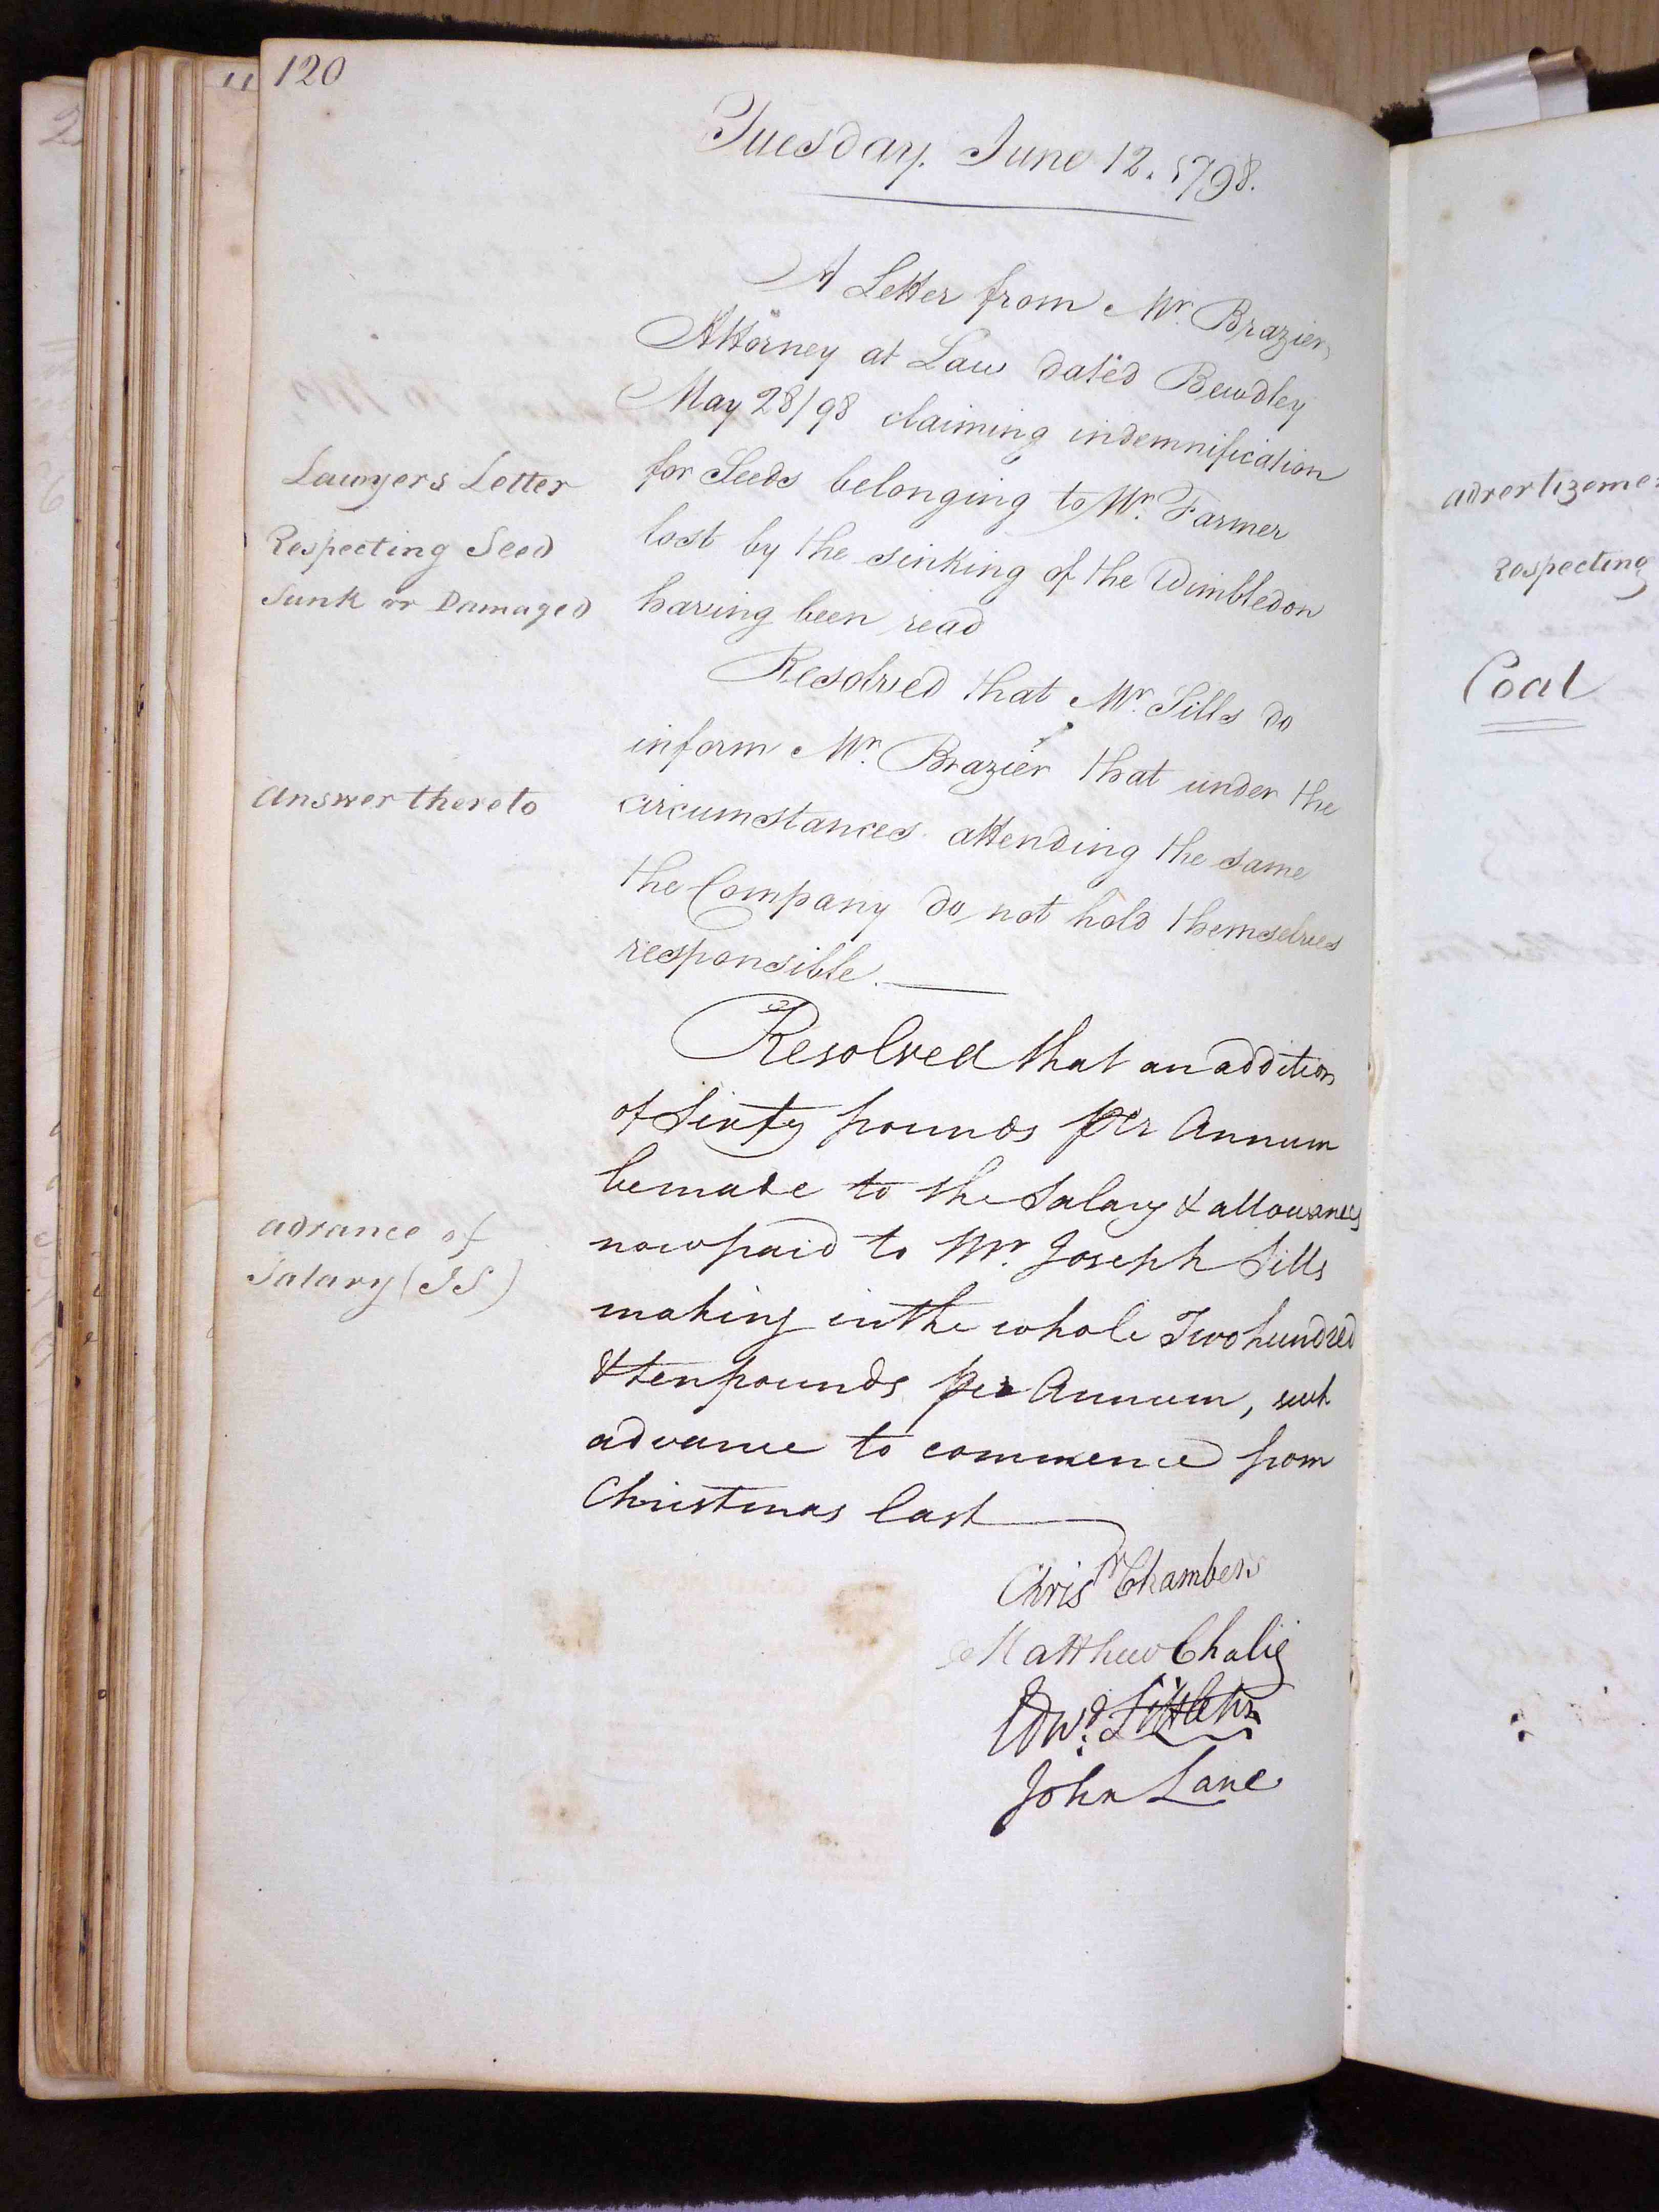 120
Tuesday. June 12. 1798.
A Letter from Mr. Brazier,
Attorney at Law dated Bewdley
May 28/98 claiming indemnification
for Seeds belonging to Mr. Farmer
lost by the sinking of the Wimbledon
having been read
Lawyers Letter
Respecting Seed
Sunk or Damaged
Resolved that Mr. Sills do
inform Mr. Brazier that under the
circumstances attending the same
the Company do not hold themselves
responsible.
Answer thereto
Resolved that an addition
of Sixty pounds per Annum
be made to the Salary & allowances
now paid to Mr. Joseph Sills
making in the whole Two hundred
& ten pounds per Annum, such
advance to commence from
Christmas last
advance of
Salary (JS)
Chrisr Chambers
Matthew Chalié
Edwd. Littleton
John Lane
advertizeme
Respecting
Coal